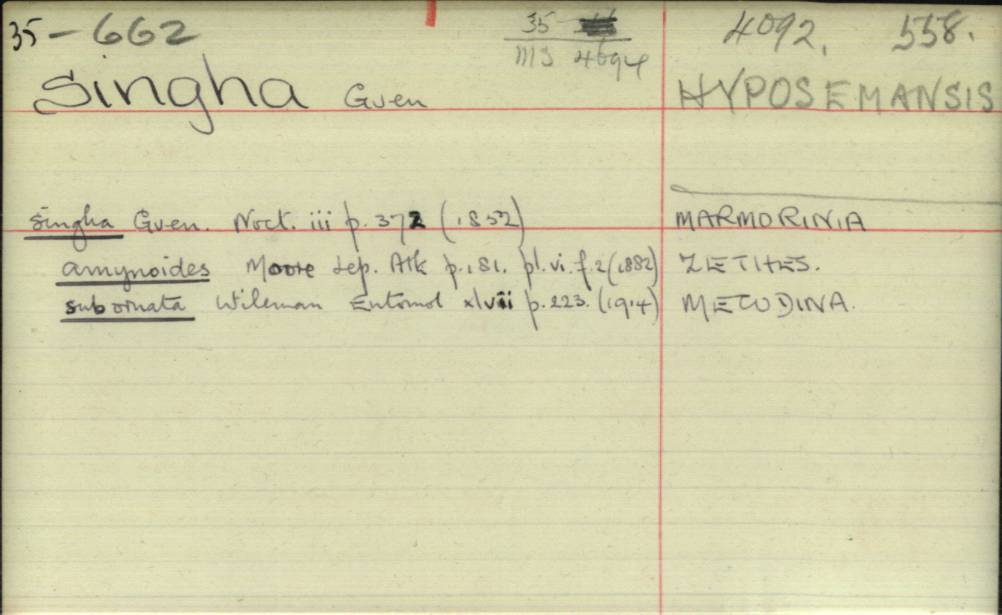 35-662 35- 4092. 558.
MS 4094
Singha Guen HYPOSEMANSIS
singha Guen. Noct. iii p. 372 (1852) MARMORINIA
amynoides Moore Lep. Atk p. 181. pl. vi. f. 2 (1882) ZETHES.
subornata Wileman Entomol xlvii p. 223. (1914) MECODINA.